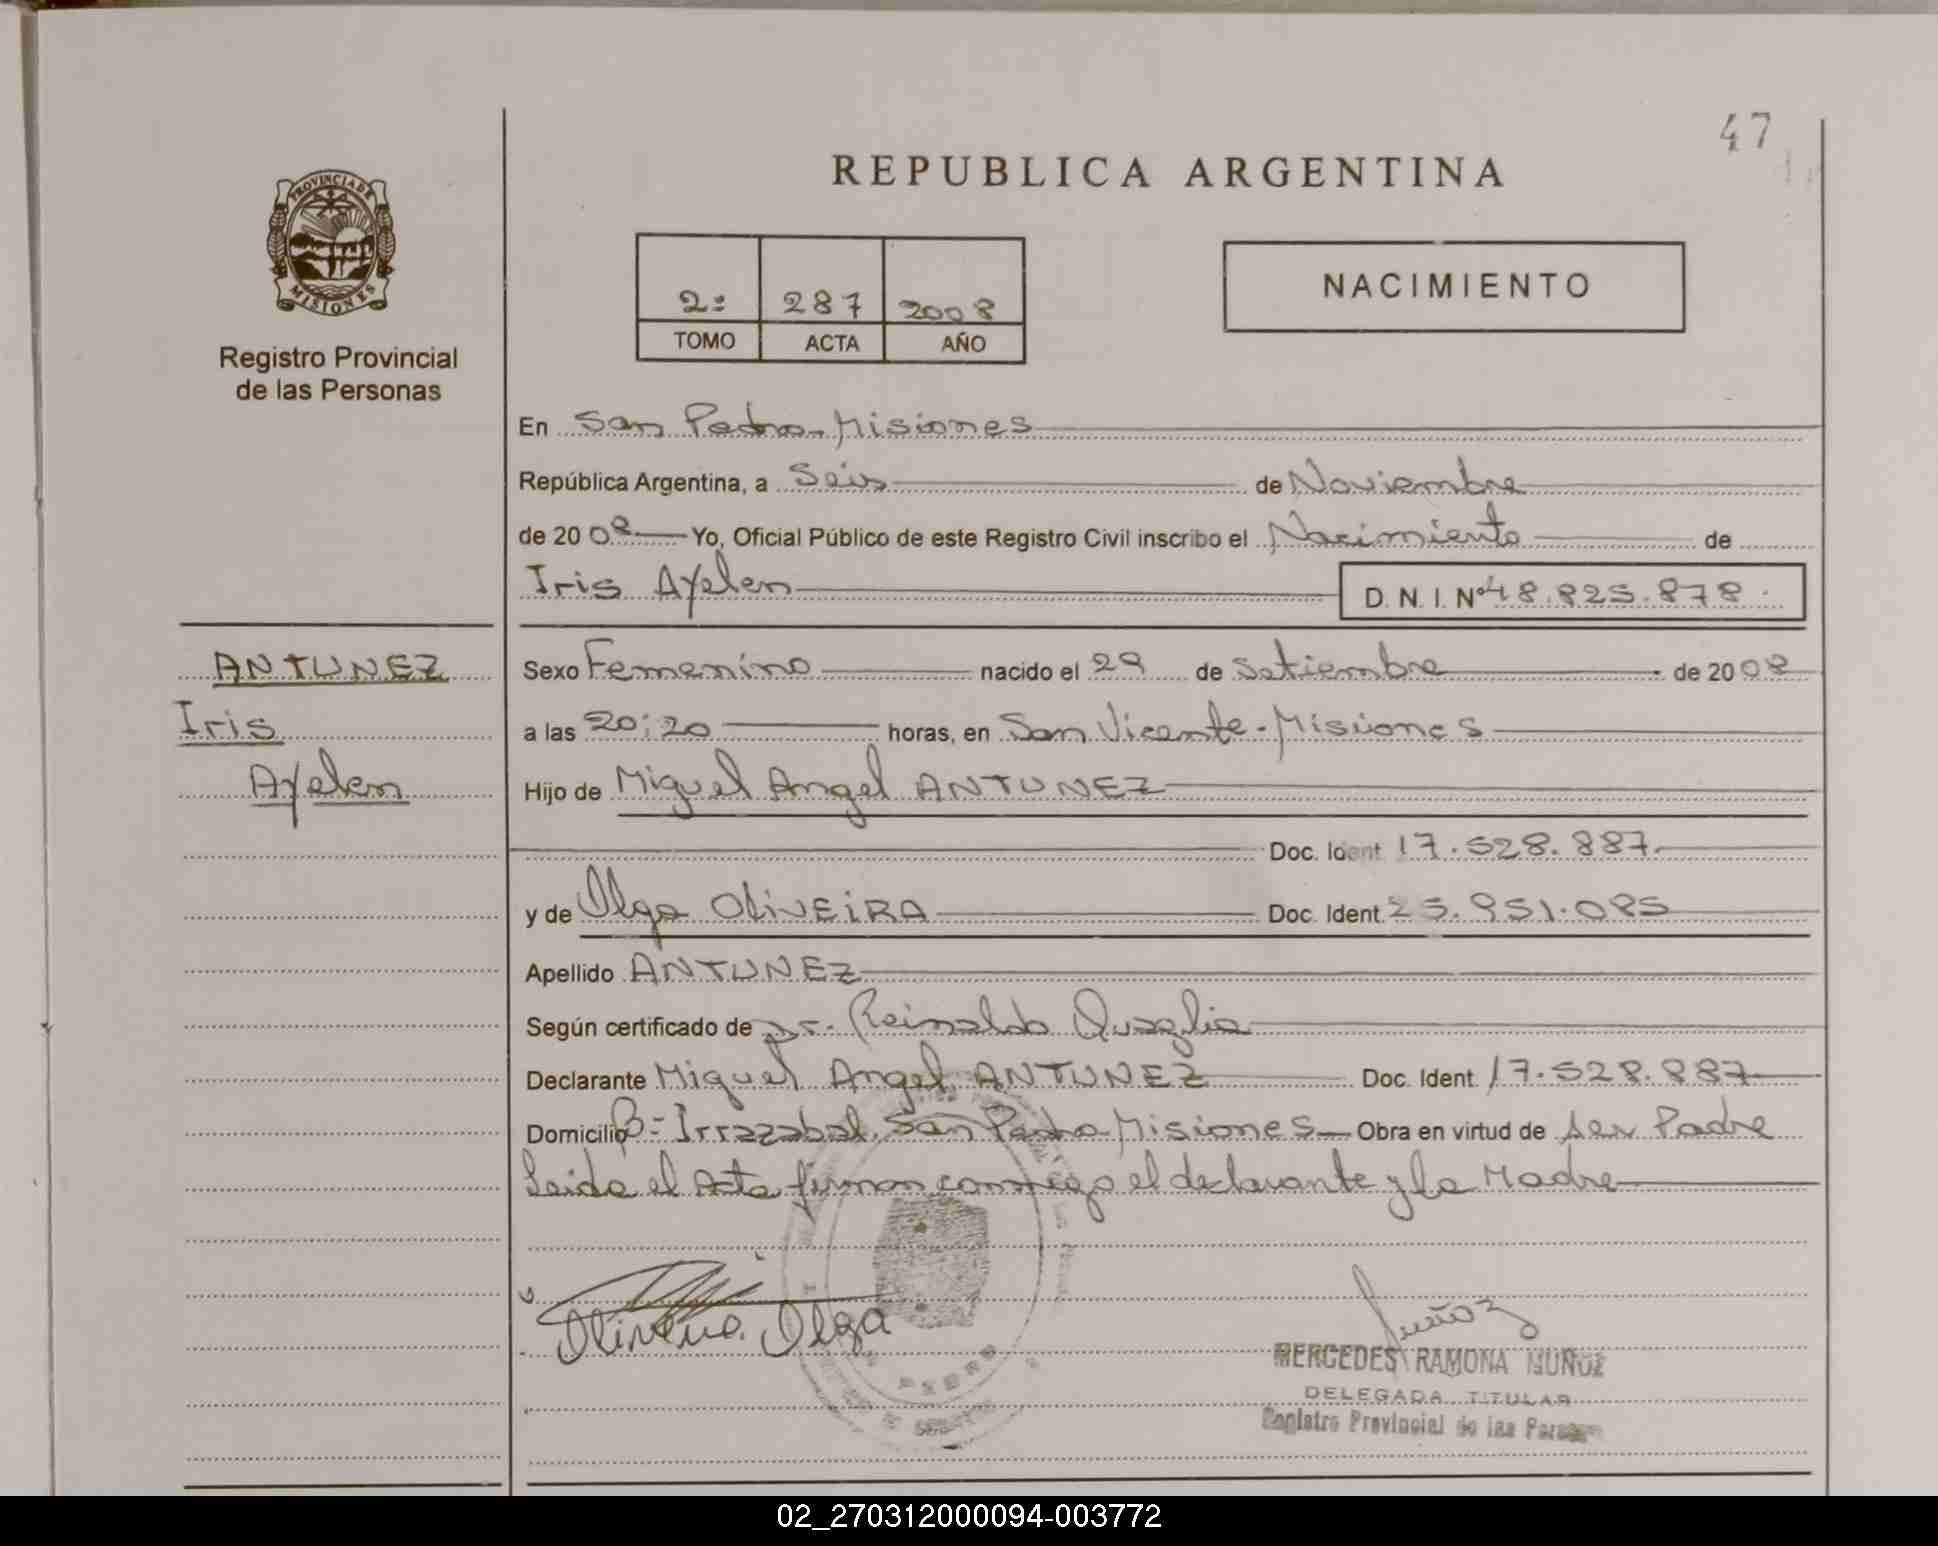 47
REPUBLICA ARGENTINA
PROVINCIA DE
MISIONES
Registro Provincial
de las Personas
2º 287 2008
TOMO ACTA AÑO
NACIMIENTO
En San Pedro - Misiones
República Argentina, a Seis de Noviembre
de 20 08 Yo, Oficial Público de este Registro Civil inscribo el Nacimiento de
Iris Ayelen D. N. I. Nº 48.825.878.
ANTUNEZ
Iris
Ayelen
Sexo Femenino nacido el 29 de Setiembre de 20 08
a las 20:20 horas, en San Vicente - Misiones
Hijo de Miguel Angel ANTUNEZ
Doc. Ident. 17.528.887.
y de Olga OLIVEIRA Doc. Ident. 25.951.085
Apellido ANTUNEZ
Según certificado de Dr. Reinaldo Quaglia
Declarante Miguel Angel ANTUNEZ Doc. Ident. 17.528.887
Domicilio Bº Irrazabal, San Pedro Misiones Obra en virtud de ser Padre
Leida el Acta firman conmigo el declarante y la Madre
Oliveira Olga
Muñoz
MERCEDES RAMONA MUÑOZ
DELEGADA TITULAR
Registro Provincial de las Personas
02_270312000094-003772